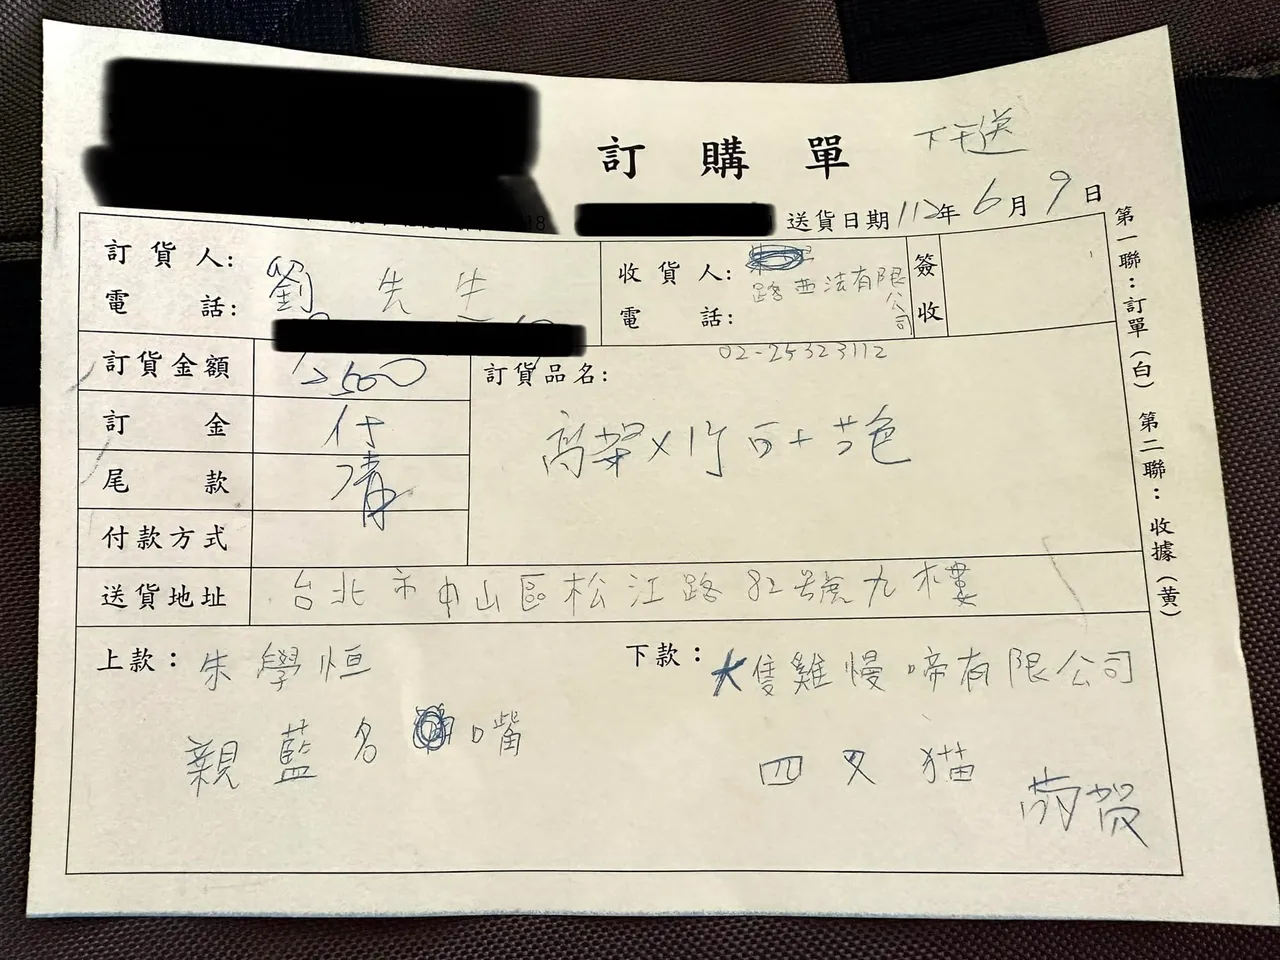 訂購單 下午送
送貨日期 112年 6月 9日
訂貨人: 劉先生
電話:
收貨人: 路西法有限公司
電話: 02-25323112
簽收
訂貨金額 2500
訂金 付
尾款 清
付款方式
訂貨品名:
送貨地址 台北市中山區松江路82號九樓
上款: 朱學恒
親藍名嘴
下款: 大隻雞慢啼有限公司
四叉貓
恭賀
第一聯:訂單(白) 第二聯:收據(黃)